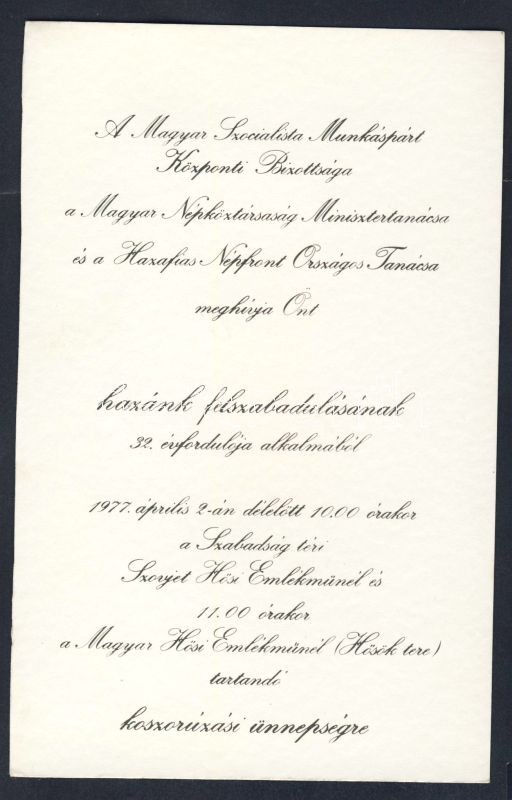 A Magyar Szocialista Munkáspárt
Központi Bizottsága
a Magyar Népköztársaság Minisztertanácsa
és a Hazafias Népfront Országos Tanácsa
meghívja Önt
hazánk felszabadulásának
32. évfordulója alkalmából
1977. április 2-án délelőtt 10.00 órakor
a Szabadság téri
Szovjet Hősi Emlékműnél és
11.00 órakor
a Magyar Hősi Emlékműnél (Hősök tere)
tartandó
koszorúzási ünnepségre